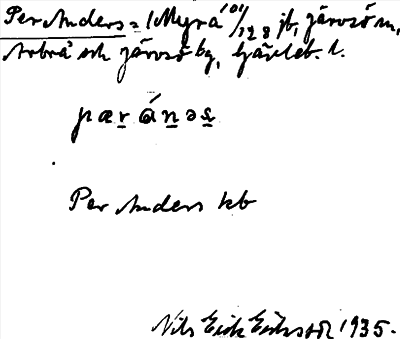 Per Anders = (Myrå 1 01/12 8 jb, Järvsö sn,
Arbrå och Järvsö tg, Gävleb. l.
pæránəs
Per Anders kb
Nils Erik Eriksson 1935.